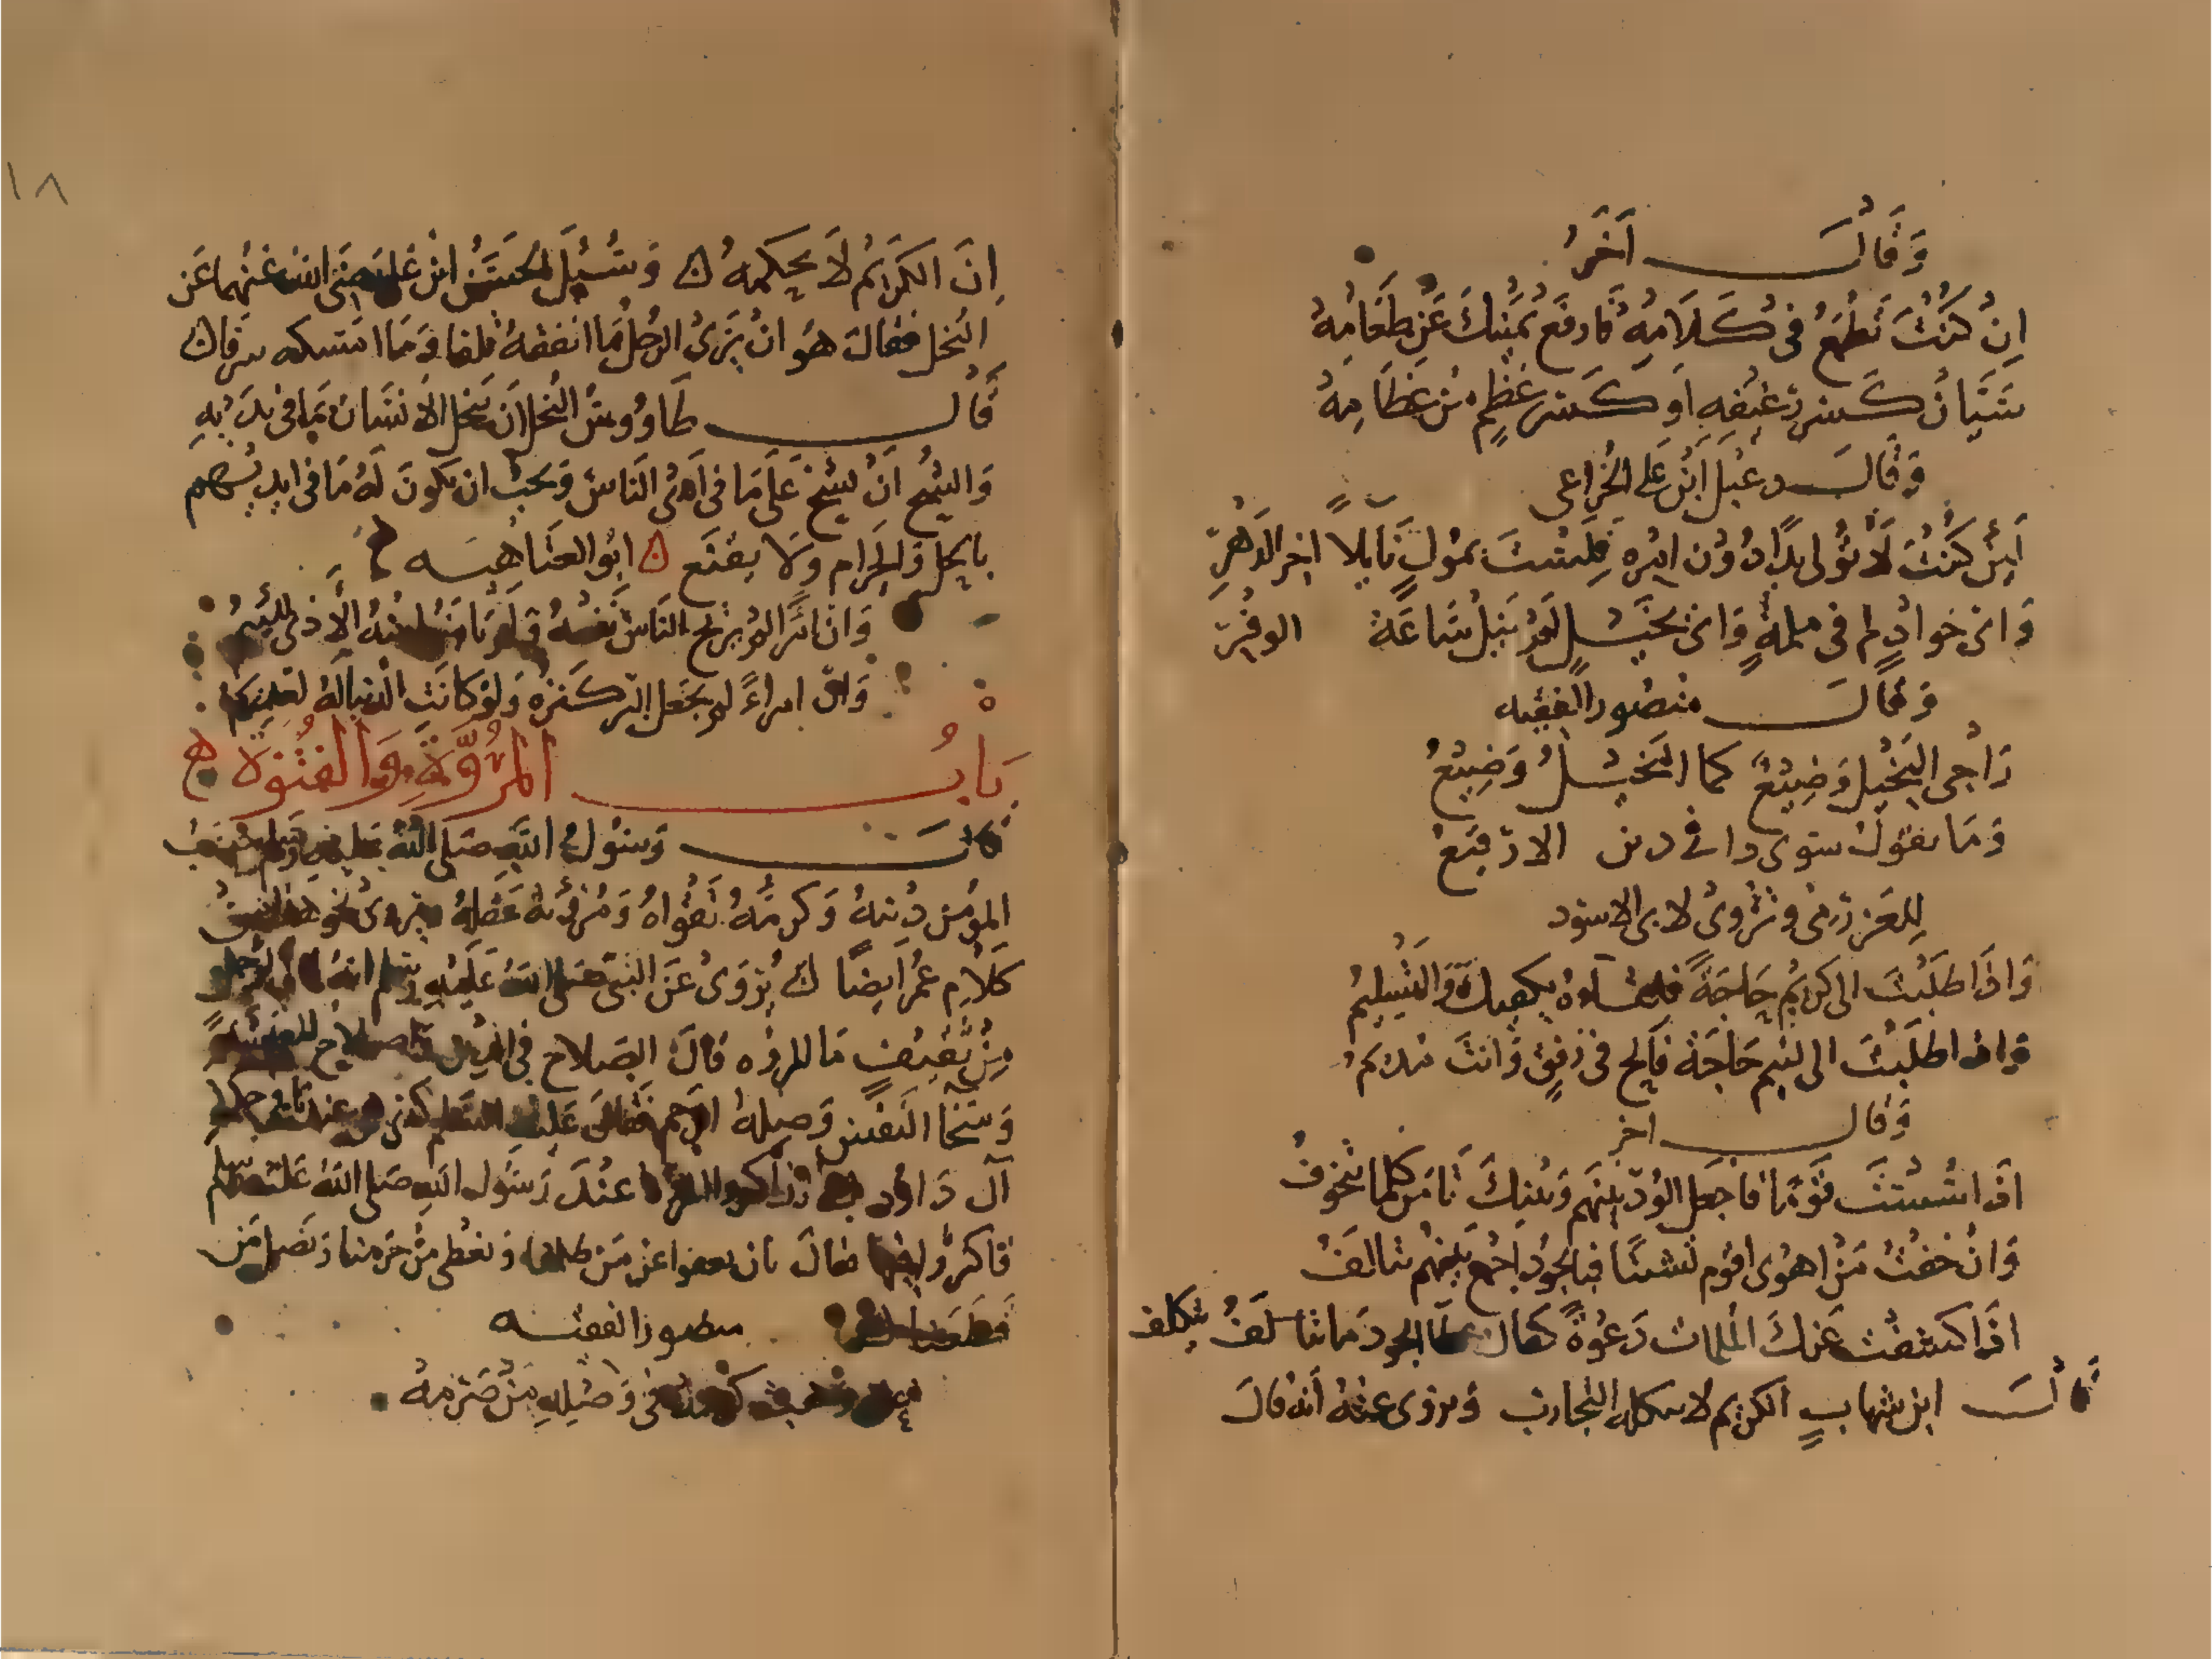 وَقَالَ آخَرُ
إِنْ كُنْتَ تَطْمَعُ فِي كَلَامِهِ فَارْفَع يَمِينَكَ عَنْ طَعَامِهْ
سِيَّانِ كَسر رَغِيفِهِ أَو كَسر عَظْمٍ مِن عِظَامِهْ
وَقَالَ دعبل ابن علي الخزاعي
لَئِن كُنْتَ لَا تُولى يَدًا دُونَ امره فَلَسْتَ بمُولٍ نَايلًا اخر الدَهْرِ
وَاى جَوادٍ لم في ملمةٍ وَاى بَخيل لَم يُنِل سَاعَةَ الوفرِ
وَقَالَ منصور الفقيه
رَاجى البَخيل وَضِيْعٌ كما البَخيل وَضِيعُ
وَمَا يقول سوى ذا في دين الا رَقِيعُ
لِلعَرزمى وتُروىُ لابى الاسود
وَاذا طَلَبْتَ الى كريم حَاجَةً فلقاوه يكفيك وَالتسليمُ
وَاذا طلَبْتَ الى لئيم حَاجَةً فَالح في رفقٍ وَانتَ مديمُ
وَقال اخر
اذا شئت قومًا فاجعل الودّ بينهم وَبينكَ تامن كلما تتخوفُ
وَانْ خفتُ مِنْ اهوى اقوم تشتتًا فبالجود اجمع بينهم تتالفُ
اذا كشفت عنك الملمات دَعْوةً كفاك الجود مَا تتكلف
قَالَ ابن شهابٍ الكريم لا تحكمه التجارب وَيروى عنهُ أنه قالَ
١٨
إِنَ الكَريم لَا تحكمهُ وَسُئِلَ الحَسَن ابْن عَلي رضى الله عَنهما عَن
البُخل فقالَ هُو انْ يَرَىُ الرجلُ مَا انفقهُ تلفا وَمَا امسكه سرفا
قَال طَاوُوسُ البُخل اَن يَبخل الانسَان بمَا فى يدَيْهِ
وَالشُح اَنْ يشح عَلَى مَا فى اَيدى النَاس وَيحب ان يكونَ لَهُ مَا فى ايديهم
بالحل وَالحَرام وَلَا يقنَع ابُو العتَاهيه
وَان امرًا لم يربح الناسُ نفعهُ وَلم يَامَنُوا منهُ الأذى للئيمُ
وَان امراءً لم يجعل البرّ كنزَه وَلوْ كانَتِ الدنيا لهُ لعَدِيمُ
بَابُ المُرُوَّةِ وَالفُتُوَّة
قَالَ رَسُولُ اللَّهِ صَلى اللهُ عَليهِ وَسلم حَسَبُ
المؤمن دِينهُ وَكرمُهُ تَقْواهُ وَمُرؤتهُ عَقلهُ ويروى نحو هذا من
كَلَامِ عمر ايضًا يُرْوَىُ عَنَ النبى صلى اللهُ عَلَيْهِ وسلم انهُ قال لرجل
مِنْ ثَقيفٍ مَا المروه قالَ الصَلاح فى الدين وَاصلاح المعيشة
وَسَخَا النَفْس وَصِلهُ الرحم فقالَ عَليه السلم كذى هى عندنا فى حكمة
آل دَاوُد تذاكروا المروه عنْدَ رَسُول اللهِ صَلى اللهُ عَليه وسلم
فاكثروا فيها فقالَ بان تعفوا عن مَن ظلمنا وَنعطى مَنْ حَرَمنا وَنَصل مَن
قَطَعنا منصور الفقيه
فى وَصْلِهِ مَنْ صَرَمهُ